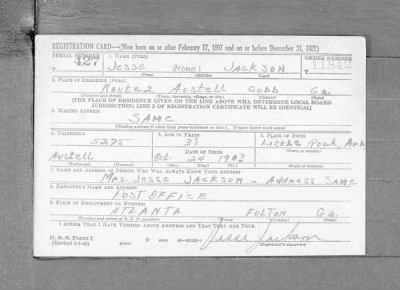 REGISTRATION CARD—(Men born on or after February 17, 1897 and on or before December 31, 1921)
SERIAL NUMBER 1. NAME (Print) ORDER NUMBER
427 Jesse (None) JACKSON 11842
(First) (Middle) (Last)
2. PLACE OF RESIDENCE (Print)
Route 2 Austell Cobb Ga.
(Number and street) (Town, township, village, or city) (County) (State)
[THE PLACE OF RESIDENCE GIVEN ON THE LINE ABOVE WILL DETERMINE LOCAL BOARD
JURISDICTION; LINE 2 OF REGISTRATION CERTIFICATE WILL BE IDENTICAL]
3. MAILING ADDRESS
SAME
[Mailing address if other than place indicated on line 2. If same insert word same]
4. TELEPHONE 5. AGE IN YEARS 6. PLACE OF BIRTH
5275 Little Rock Ark
DATE OF BIRTH
Austell Oct. 24
7. NAME AND ADDRESS OF PERSON WHO WILL ALWAYS KNOW YOUR ADDRESS
Mrs. Jesse JACKSON - Address Same
8. EMPLOYER'S NAME AND ADDRESS
POST OFFICE
9. PLACE OF EMPLOYMENT OR BUSINESS
ATLANTA FULTON Ga.
(Number and street or R. F. D. number) (Town) (County) (State)
I AFFIRM THAT I HAVE VERIFIED ABOVE ANSWERS AND THAT THEY ARE TRUE.
D. S. S. Form 1
(Revised 1-1-42) (over) Jesse Jackson
(Registrant's signature)